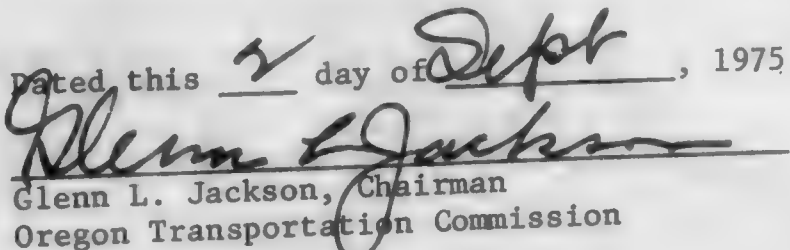 Dated this 2 day of Sept, 1975
Glenn L Jackson
Glenn L. Jackson, Chairman
Oregon Transportation Commission